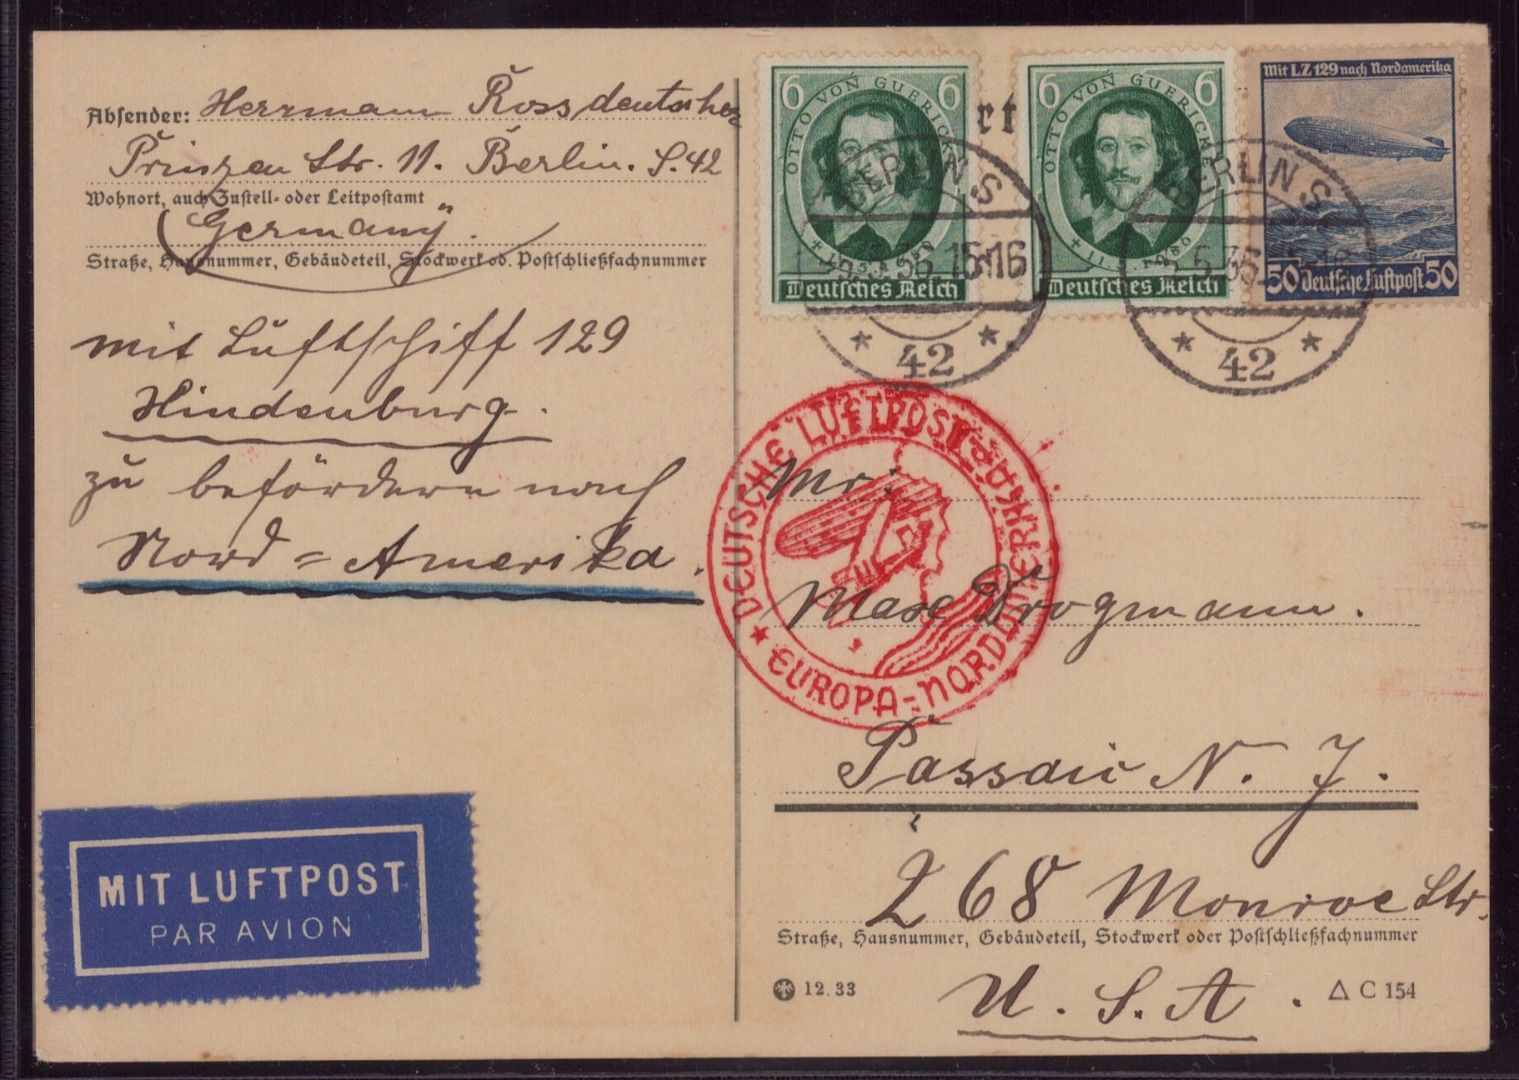 Absender: Herrmann Rossdeutscher
Prinzen Str. 11. Berlin. S. 42
Wohnort, auch Zustell- oder Leitpostamt
(Germany.)
Straße, Hausnummer, Gebäudeteil, Stockwerk od. Postschließfachnummer
mit Luftschiff 129
Hindenburg.
zu befördern nach
Nord=Amerika.
MIT LUFTPOST
PAR AVION
6 OTTO VON GUERICKE 6
Deutsches Reich
6 OTTO VON GUERICKE 6
Deutsches Reich
Mit LZ 129 nach Nordamerika
50 Deutsche Luftpost 50
BERLIN S
15-16
* 42 *
BERLIN S
* 42 *
DEUTSCHE LUFTPOST
* EUROPA-NORDAMERIKA
Mr.
Max Drogmann.
Passaic N. J.
268 Monroe Str.
Straße, Hausnummer, Gebäudeteil, Stockwerk oder Postschließfachnummer
12.33
Δ C 154
U. S. A.